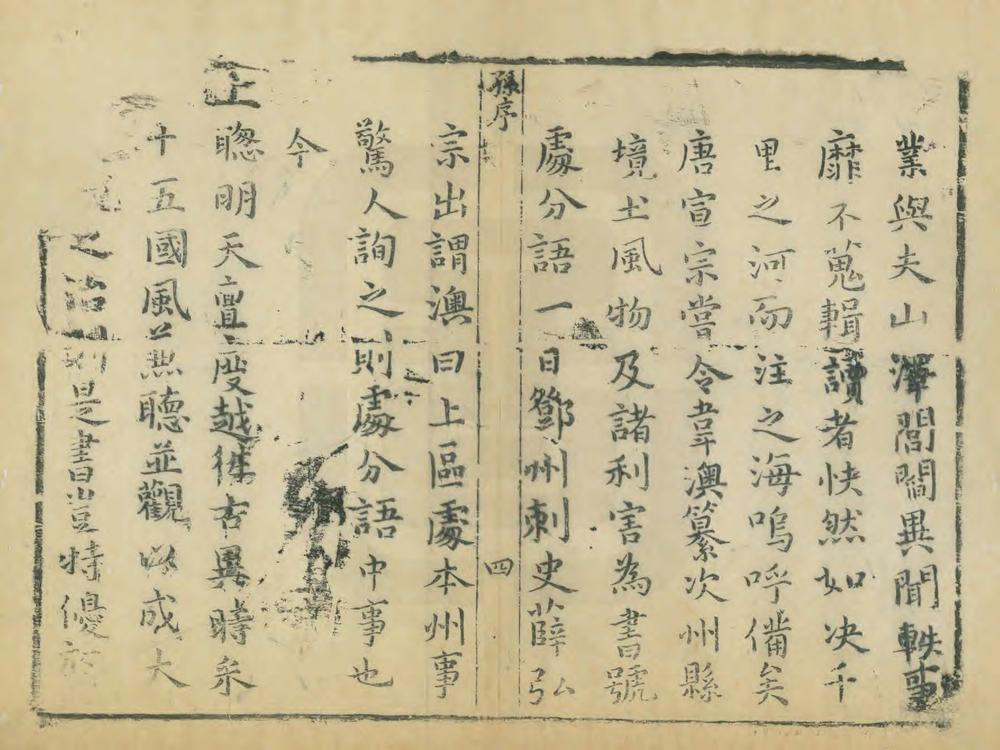 業與夫山澤閭閻異聞軼事
靡不蒐輯讀者快然如决千
里之河而注之海嗚呼備矣
唐宣宗嘗令韋澳纂次州縣
境土風物及諸利害為書號
處分語一日鄧州刺史薛弘
孫序
四
宗出謂澳曰上區處本州事
驚人詢之則處分語中事也
今
上聰明天亶度越徃古異時采
十五國風並聽並觀以成大
之治則是書豈特優